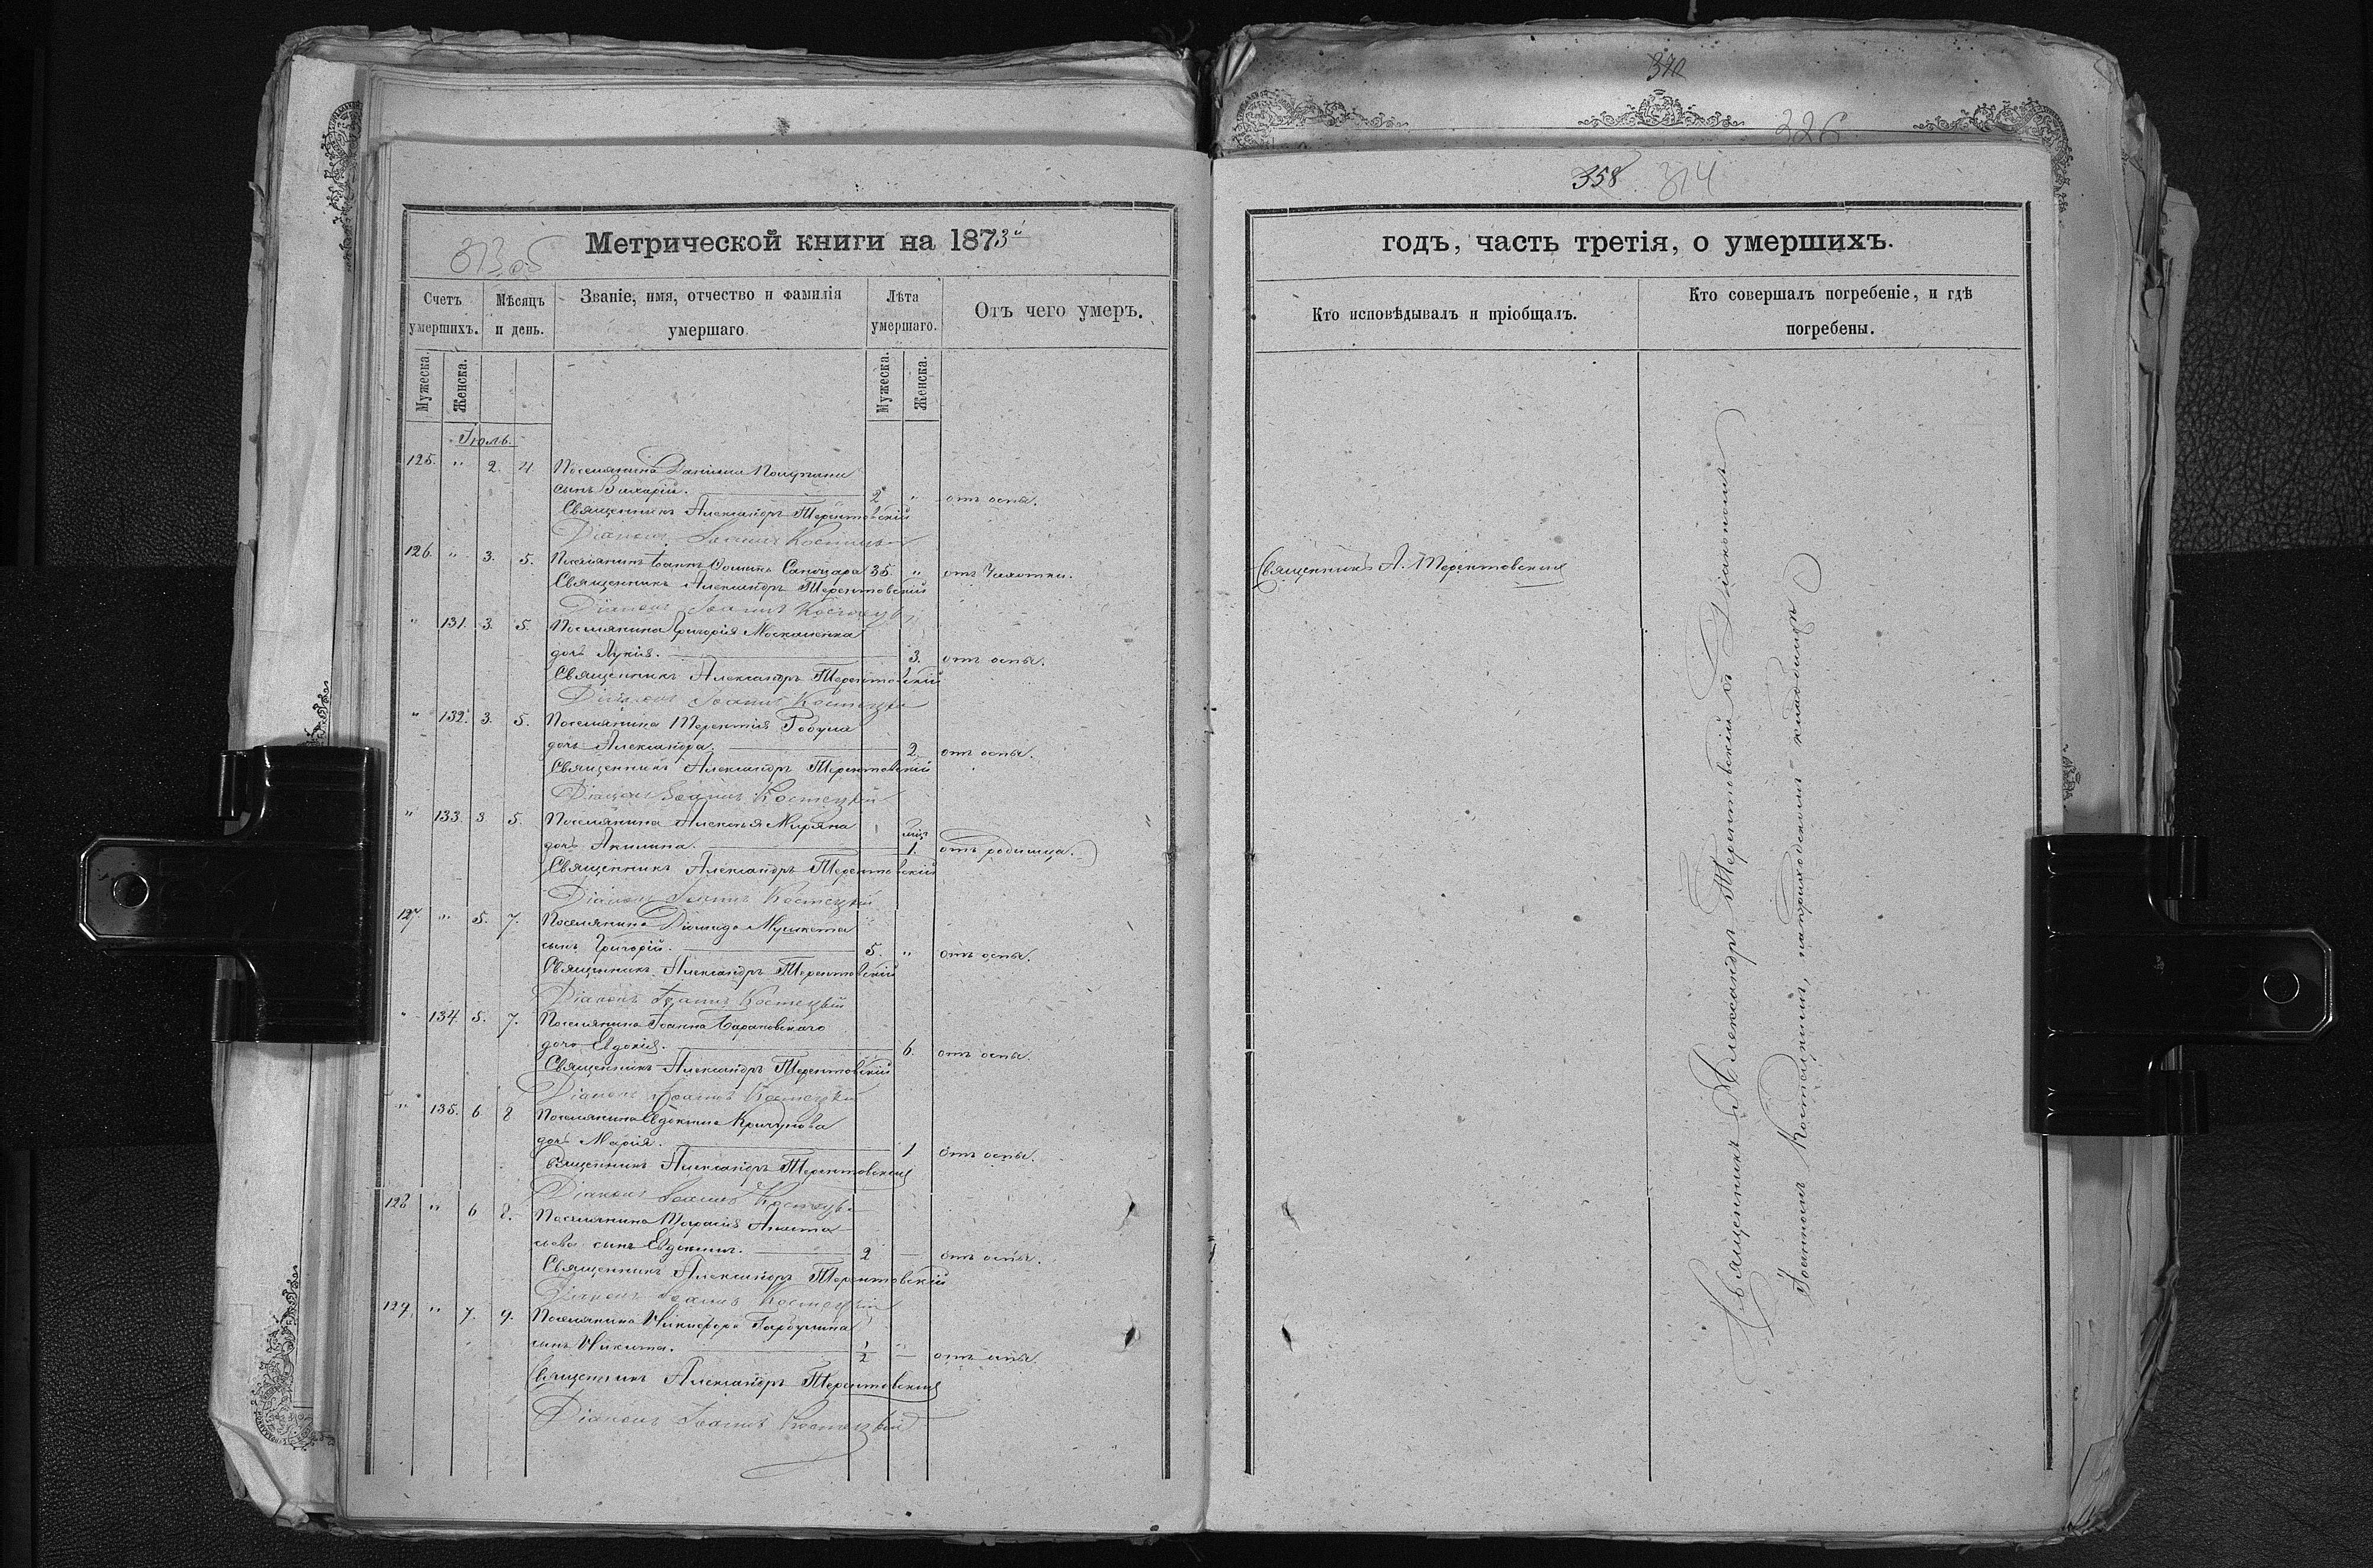 313 об
Метрической книги на 1873й
Счетъ умершихъ.
Мѣсяцъ и день.
Званіе, имя, отчество и фамилія умершаго
Лѣта умершаго.
Отъ чего умеръ.
Мужеска.
Женска.
Мужеска.
Женска.
Іюль.
125. " 2. 4 Поселянина Даніила
сынъ Захарій. 2 " отъ оспы.
Священникъ Александръ Терентовскій
Діаконъ Іоаннъ Костецкій
126. " 3. 5. Поселянинъ Іоаннъ Сапожара 35. " отъ Чахотки.
Священникъ Александръ Терентовскій
Діаконъ Іоаннъ Костецкій
" 131. 3. 5. Поселянина Григорія Москаленка
дочь Лукія. 3. отъ оспы.
Священникъ Александръ Терентовскій
Діаконъ Іоаннъ Костецкій
" 132. 3. 5. Поселянина Терентія
дочь Александра. 2 отъ оспы.
Священникъ Александръ Терентовскій
Діаконъ Іоаннъ Костецкій
" 133. 3. 5. Поселянина Алексѣя
дочь Акилина. 1. отъ родимца.
Священникъ Александръ Терентовскій
Діаконъ Іоаннъ Костецкій
127. " 5. 7. Поселянина Діомида Мушкета
сынъ Григорій. 5. " отъ оспы.
Священникъ Александръ Терентовскій
Діаконъ Іоаннъ Костецкій
" 134. 5. 7. Поселянина Іоанна Барановскаго
дочь Евдокія. 6. отъ оспы.
Священникъ Александръ Терентовскій
Діаконъ Іоаннъ Костецкій
" 135. 6 8 Поселянина Евдокима Кричунова
дочь Марія. 1 отъ оспы.
Священникъ Александръ Терентовскій
Діаконъ Іоаннъ Костецкій
128 " 6 8. Поселянина Тарасія Анаста
сьева сынъ Евдокимъ. 2 — отъ оспы.
Священникъ Александръ Терентовскій
Діаконъ Іоаннъ Костецкій
129. " 7. 9. Поселянина Никифора
сынъ Никита. 1/2 " отъ оспы.
Священникъ Александръ Терентовскій
Діаконъ Іоаннъ Костецкій
310
226
358 314
годъ, часть третія, о умершихъ.
Кто исповѣдывалъ и пріобщалъ.
Кто совершалъ погребеніе, и гдѣ погребены.
Священникъ А. Терентовскій
Священникъ Александръ Терентовскій съ Діакономъ
Іоанномъ Костецкимъ, на приходскомъ кладбищѣ